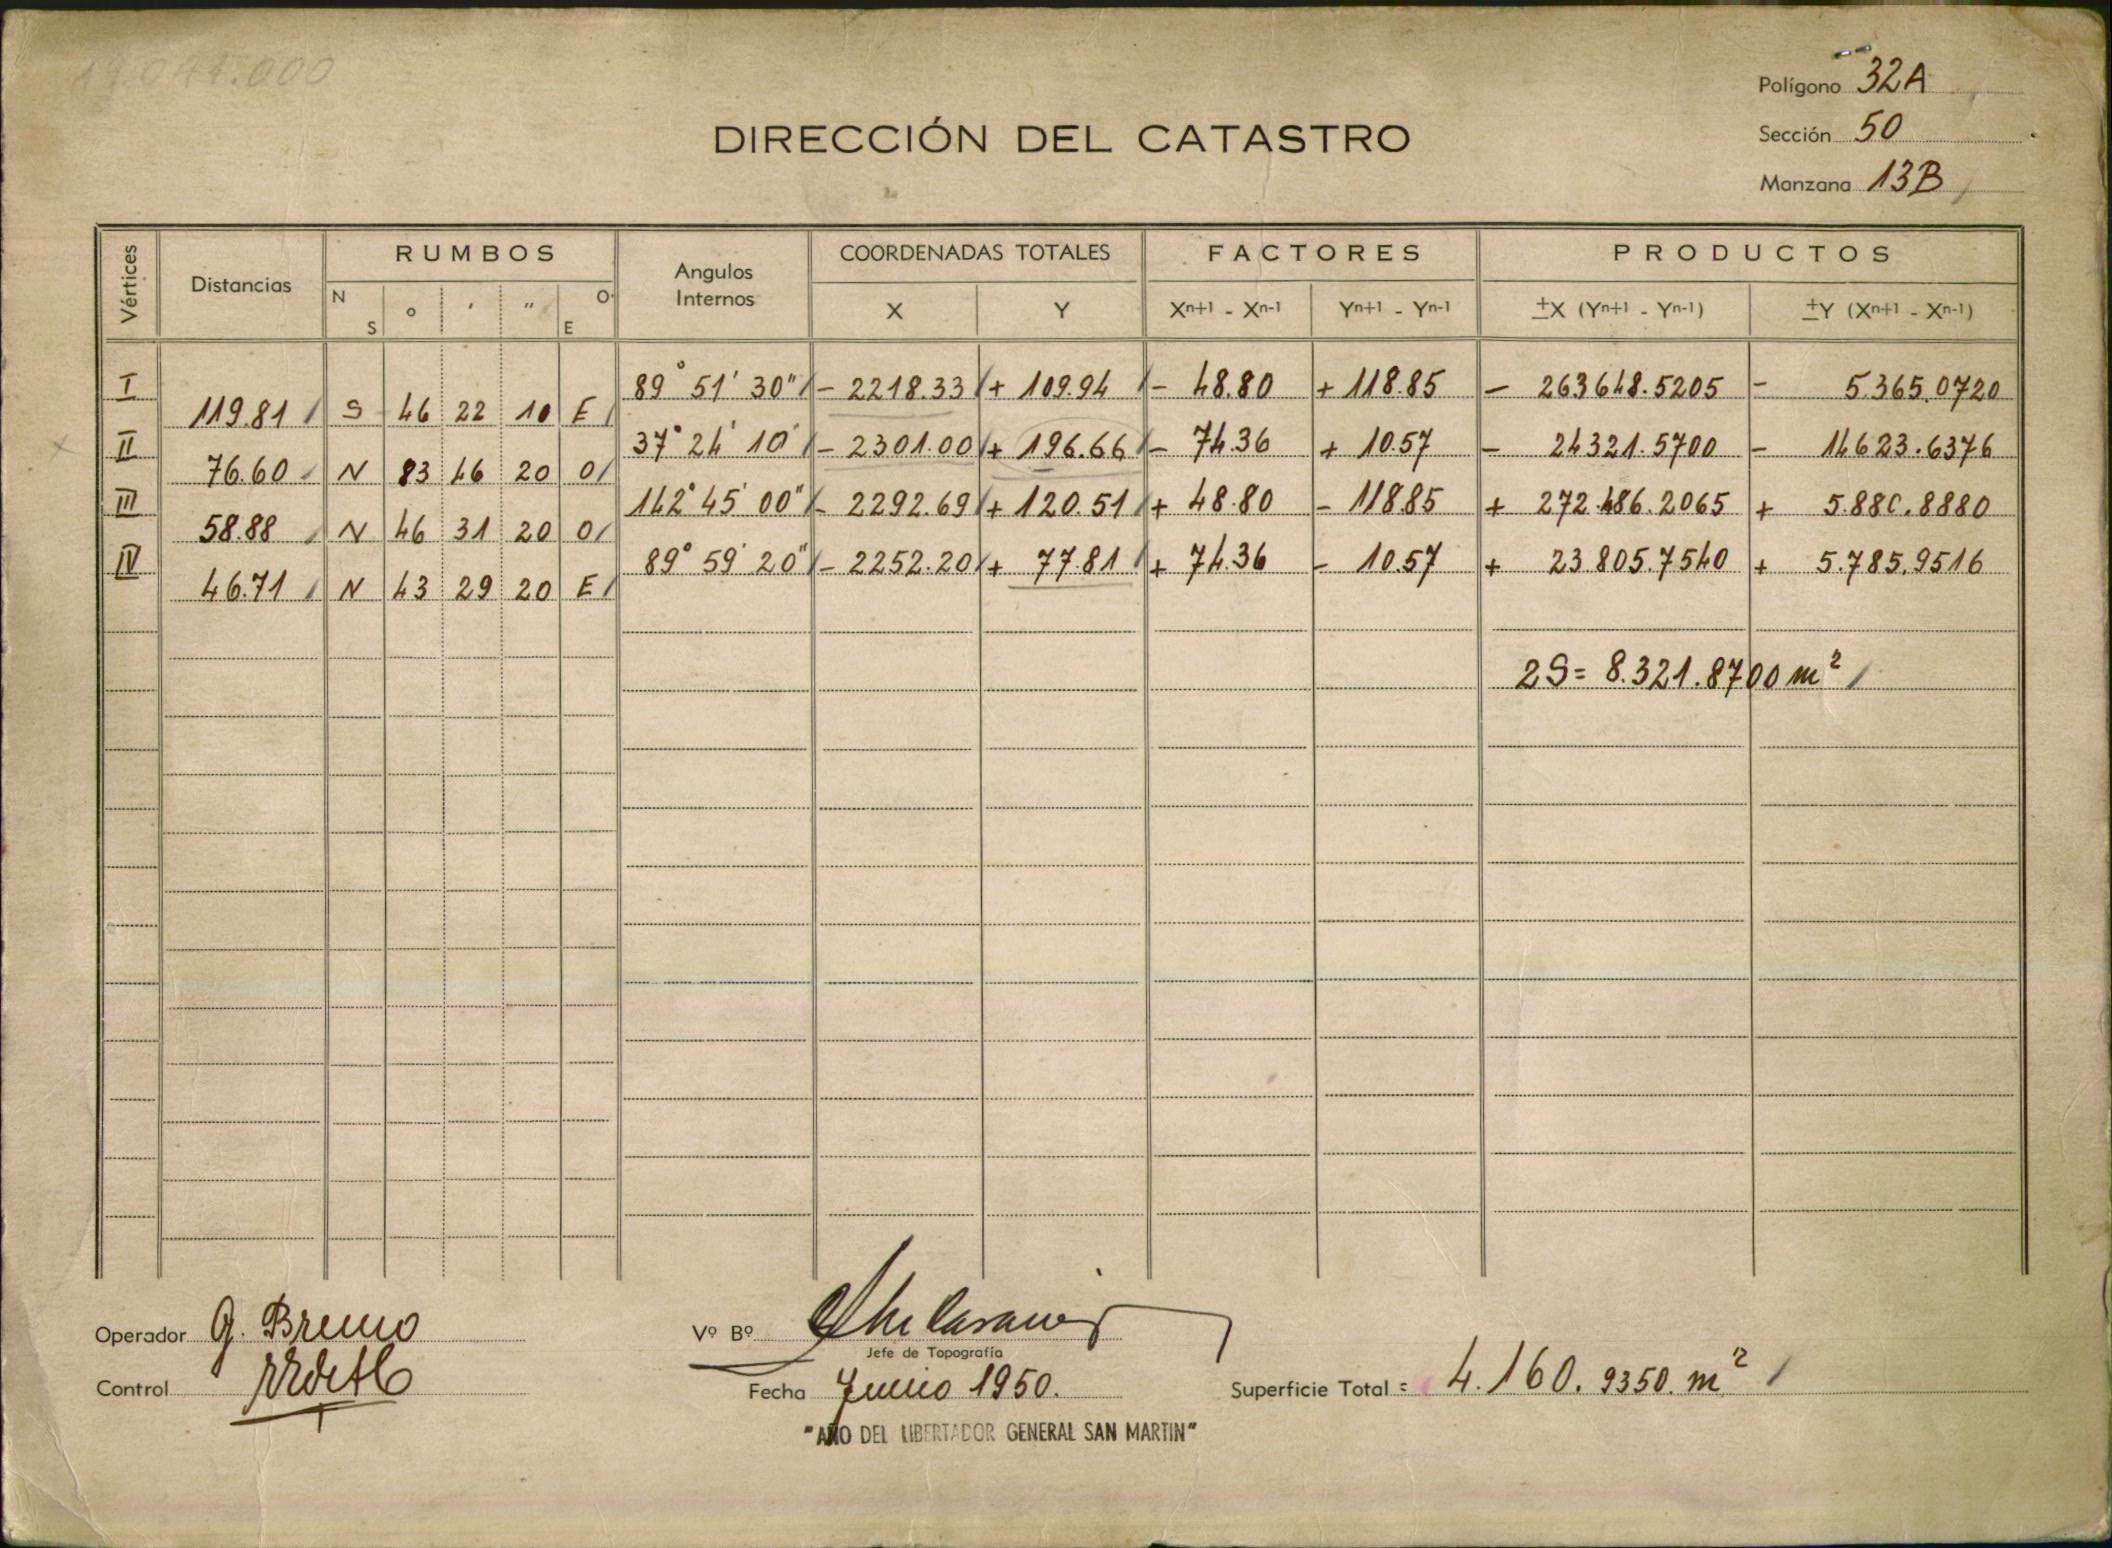 19.041.000
Polígono 32A
Sección 50
Manzana 13B
DIRECCIÓN DEL CATASTRO
Vértices Distancias RUMBOS Angulos Internos COORDENADAS TOTALES FACTORES PRODUCTOS
N S ° ' " O E X Y Xn+1 - Xn-1 Yn+1 - Yn-1 ±X (Yn+1 - Yn-1) ±Y (Xn+1 - Xn-1)
I 89° 51' 30" - 2218.33 + 109.94 - 48.80 + 118.85 - 263648.5205 - 5.365.0720
119.81 S 46 22 10 E
II 37° 24' 10' - 2301.00 + 196.66 - 74.36 + 10.57 - 24321.5700 - 14623.6376
76.60 N 83 46 20 O
III 142° 45' 00" - 2292.69 + 120.51 + 48.80 - 118.85 + 272.486.2065 + 5.880.8880
58.88 N 46 31 20 O
IV 89° 59' 20" - 2252.20 + 77.81 + 74.36 - 10.57 + 23.805.7540 + 5.785.9516
46.71 N 43 29 20 E
2S = 8.321.8700 m²
Operador G. Bruno
Vº Bº
Jefe de Topografía
Control
Fecha Junio 1950.
Superficie Total = 4.160.9350. m²
"AÑO DEL LIBERTADOR GENERAL SAN MARTIN"